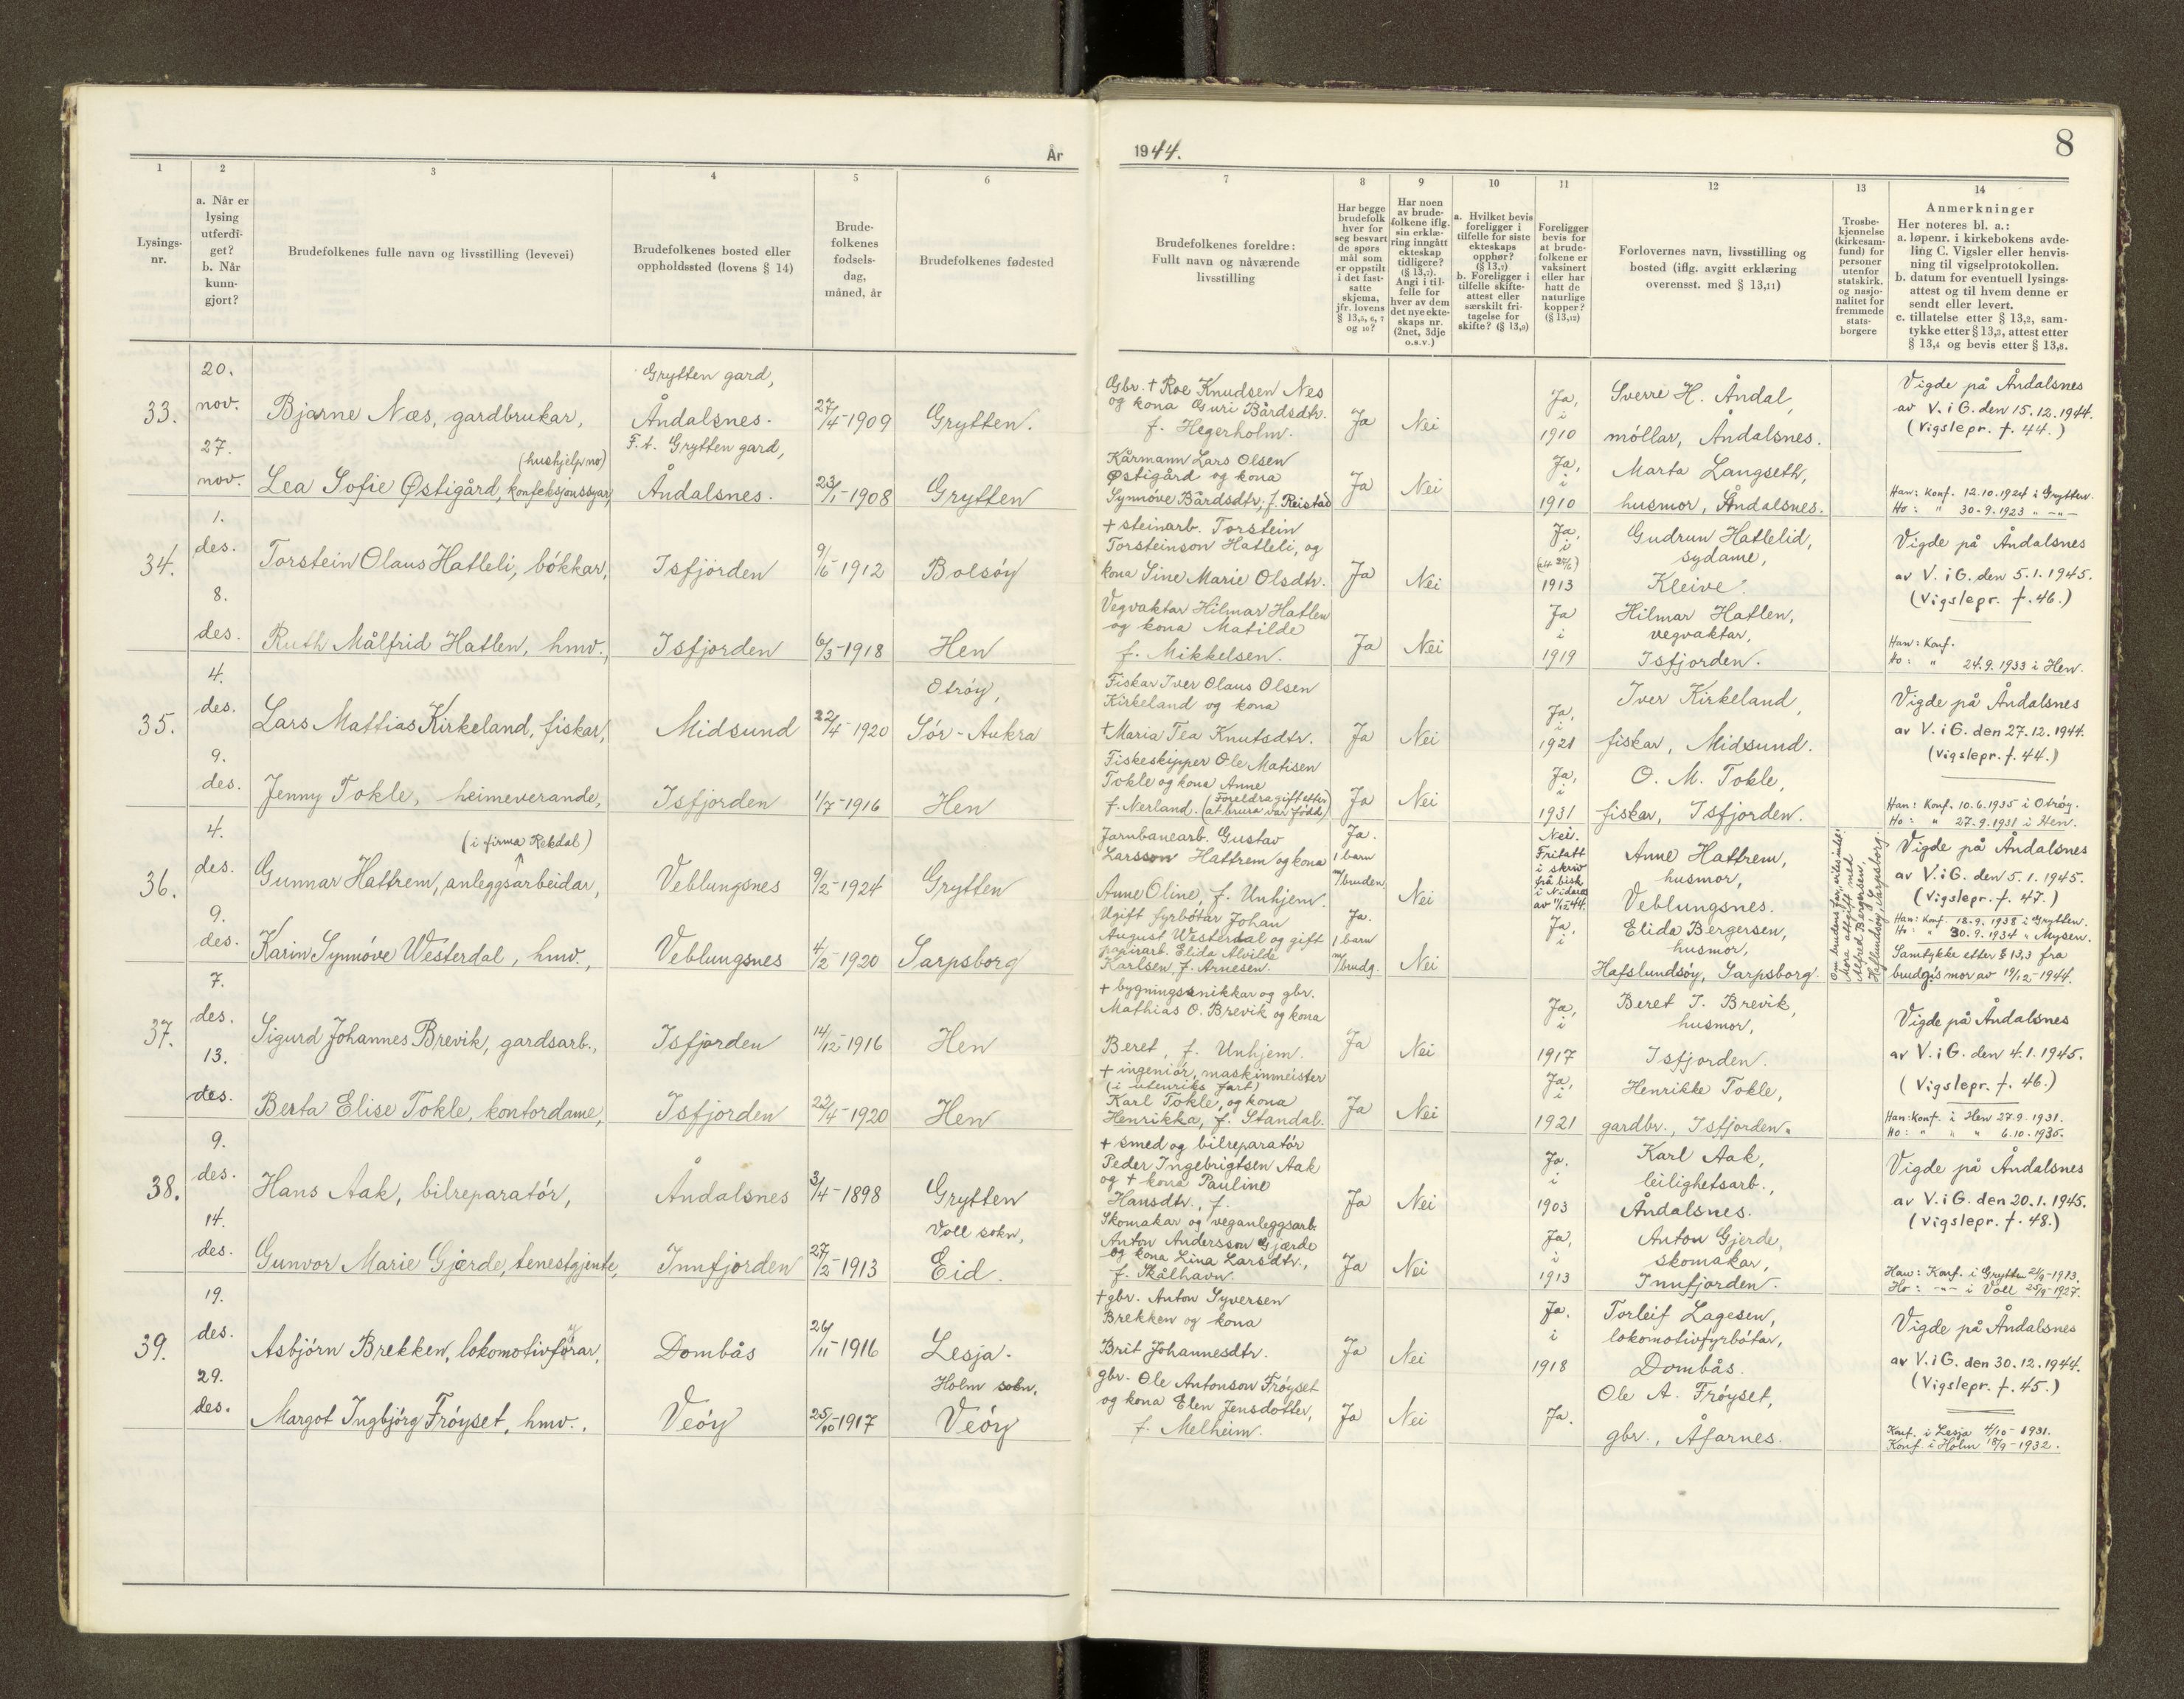 År
1944.
8
1
2
3
4
5
6
7
8
9
10
11
12
13
14
Lysings-
nr.
a. Når er
lysing
utferdi-
get?
b. Når
kunn-
gjort?
Brudefolkenes fulle navn og livsstilling (levevei)
Brudefolkenes bosted eller
oppholdssted (lovens § 14)
Brude-
folkenes
fødsels-
dag,
måned, år
Brudefolkenes fødested
Brudefolkenes foreldre:
Fullt navn og nåværende
livsstilling
Har begge
brudefolk
hver for
seg besvart
de spørs
mål som
er oppstilt
i det fast-
satte
skjema,
jfr. lovens
§ 13,5, 6, 7
og 10?
Har noen
av brude-
folkene iflg.
sin erklæ-
ring inngått
ekteskap
tidligere?
(§ 13,7)
Angi i til-
felle for
hver av dem
det nye ekte-
skaps nr.
(2net, 3dje
o.s.v.)
a. Hvilket bevis
foreligger i
tilfelle for siste
ekteskaps
opphør?
(§ 13,7)
b. Foreligger i
tilfelle skifte-
attest eller
særskilt fri-
tagelse for
skifte? (§ 13,9)
Foreligger
bevis for
at brude-
folkene er
vaksinert
eller har
hatt de
naturlige
kopper?
(§ 13,12)
Forlovernes navn, livsstilling og
bosted (iflg. avgitt erklæring
overensst. med § 13,11)
Trosbe-
kjennelse
(kirkesam-
fund) for
personer
utenfor
statskirk.
og nasjo-
nalitet for
fremmede
stats-
borgere
Anmerkninger
Her noteres bl. a.:
a. løpenr. i kirkebokens avde-
ling C. Vigsler eller henvis-
ning til vigselprotokollen.
b. datum for eventuell lysings-
attest og til hvem denne er
sendt eller levert.
c. tillatelse etter § 13,2, sam-
tykke etter § 13,3, attest etter
§ 13,4 og bevis etter § 13,8.
33.
20.
nov.
27.
nov.
Bjarne Næs, gardbrukar,
Grytten gard,
Åndalsnes.
27/4-1909
Grytten.
Gbr. + Roe Knudsen Nes
og kona Guri Bårdsdtr.
f. Hegerholm.
Ja
Nei
Ja,
i
1910
Sverre H. Åndal,
móllar, Åndalsnes.
Vigde på Åndalsnes
av V. i G. den 15.12.1944.
(Vigslepr. f. 44.)
(hushjelp no)
Lea Sofie Østigård, konfeksjonssyar,
F. t. Grytten gard,
Åndalsnes.
23/1-1908
Grytten
Kårmann Lars Olsen
Østigård og kona
Synnóve Bårdsdtr, f. Reistad
Ja
Nei
Ja,
i
1910
Marta Langseth,
husmor, Åndalsnes.
Han: Konf. 12.10.1924 i Grytten.
Ho: " 30.9.1923 " -"-
34.
1.
des.
8.
des.
Torstein Olaus Hatleli, bókkar,
Isfjórden
9/6 1912
Bolsóy
+ steinarb. Torstein
Torsteinson Hatleli, og
kona Sine Marie Olsdtr.
Ja
Nei
Ja,
i
1913
Gudrun Hatlelid,
sydame,
Kleive.
Vigde på Åndalsnes
av V. i G. den 5.1.1945.
(Vigslepr. f. 46.)
Ruth Målfrid Hatlen, hmv.,
Isfjorden
6/3-1918
Hen
Vegvaktar Hilmar Hatlen
og kona Matilde
f. Mikkelsen.
Ja
Nei
Ja
i
1919
Hilmar Hatlen,
vegvaktar,
Isfjorden.
Han: Konf.
Ho: " 24.9.1933 i Hen.
35.
4.
des.
9.
des.
Lars Mattias Kirkeland, fiskar,
Midsund
22/4-1920
Otróy,
Sór-Aukra
Fiskar Iver Olaus Olsen
Kirkeland og kona
+ Maria Tea Knutsdtr.
Ja
Nei
Ja,
i
1921
Iver Kirkeland,
fiskar, Midsund.
Vigde på Åndalsnes
av V. i G. den 27.12.1944.
(Vigslepr. f. 44.)
Jenny Tokle, heimeverande,
Isfjorden
1/7-1916
Hen
Fiskeskipper Ole Matisen
Tokle og kona Anne
f. Nerland. (Foreldra gift etter
at brura var fódd)
Ja
Nei
Ja,
i
1931
O. M. Tokle,
fiskar, Isfjorden.
Han: Konf. 10.6.1935 i Otróy.
Ho: " 27.9.1931 i Hen.
36.
4.
des.
9.
des.
(i firma Rekdal)
Gunnar Hattrem, anleggsarbeidar,
Veblungsnes
9/2-1924
Grytten
Jarnbanearb. Gustav
Larsson Hattrem og kona
Anne Oline, f. Unhjem.
Ja.
1 barn
m/bruden
Nei
Nei.
Fritatt
i skriv
frå bisk.
i Nidaros
Anne Hattrem,
husmor,
Veblungsnes.
Mora attgift med
Alfred Bergersen
Hafslundsóy, Sarpsborg.
Vigde på Åndalsnes
av V. i G. den 5.1.1945.
(Vigslepr. f. 47.)
Karin Synnóve Westerdal, hmv.,
Veblungsnes
4/2-1920
Sarpsborg
Ugift fyrbótar Johan
August Westerdal og gift
papirarb. Elida Alvilde
Karlsen, f. Arnesen.
Ja.
1 barn
m/brudg.
Nei
Ja,
i
Elida Bergersen,
husmor,
Hafslundsóy, Sarpsborg.
Han: Konf. 18.9.1938 i Grytten.
Ho: " 30.9.1934 " Mysen.
Samtykke etter § 13,3 fra
brudg.s mor av 19/12-1944.
37.
7.
des.
13.
des.
Sigurd Johannes Brevik, gardsarb.,
Isfjorden
14/12-1916
Hen
+ bygningssnikkar og gbr.
Mathias O. Brevik og kona
Beret, f. Unhjem.
Ja
Nei
Ja,
i
1917
Beret J. Brevik,
husmor,
Isfjorden.
Vigde på Åndalsnes
av V. i G. den 4.1.1945.
(Vigslepr. f. 46.)
Berta Elise Tokle, kontordame,
Isfjorden
22/4-1920
Hen
+ ingeniór, maskinmeister
(i utenriks fart)
Karl Tokle, og kona
Henrikka, f. Standal.
Ja
Nei
Ja,
i
1921
Henrikke Tokle,
gardbr., Isfjorden.
Han: Konf. i Hen 27.9.1931.
Ho: " " " 6.10.1935.
38.
9.
des.
14.
des.
Hans Aak, bilreparatór,
Åndalsnes
3/4-1898
Grytten
+ smed og bilreparatór
Peder Ingebrigtsen Aak
og + kona Pauline
Hansdtr., f.
Ja
Nei
Ja.
i
1903
Karl Aak,
leilighetsarb.,
Åndalsnes.
Vigde på Åndalsnes
av V. i G. den 20.1.1945.
(Vigslepr. f. 48.)
Gunvor Marie Gjærde, tenestgjente,
Innfjorden
27/2-1913
Voll sokn,
Eid.
Skomakar og veganleggsarb.
Anton Andersson Gjærde
og kona Lina Larsdtr.,
f. Skålhavn.
Ja
Nei
Ja,
i
1913
Anton Gjerde,
skomakar,
Innfjorden.
Han: Konf. i Grytten 21/9-1913.
Ho: -"- i Voll 25/9-1927.
39.
19.
des.
29.
des.
Asbjórn Brekken, lokomotivfórar,
Dombås
26/11-1916
Lesja.
+ gbr. Anton Syversen
Brekken og kona
Brit Johannesdtr.
Ja
Nei
Ja.
i
1918
Torleif Lagesen,
lokomotivfyrbótar,
Dombås.
Vigde på Åndalsnes
av V. i G. den 30.12.1944.
(Vigslepr. f. 45.)
Margot Ingbjórg Fróyset, hmv.,
Veóy
25/10-1917
Holm sokn,
Veóy
gbr. Ole Antonson Fróyset
og kona Elen Jensdotter,
f. Melheim.
Ja
Nei
Ja.
Ole A. Fróyset,
gbr., Åfarnes.
Konf. i Lesja 4/10-1931.
Konf. i Holm 18/9-1932.